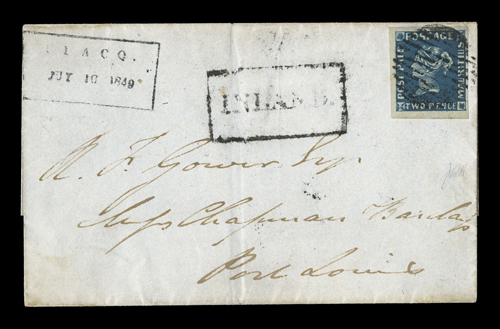 FLACQ.
JUY 10 1849
INLAND.
POSTAGE
POST PAID
MAURITIUS
TWO PENCE
Messrs Chapman Barclay
Port Louis